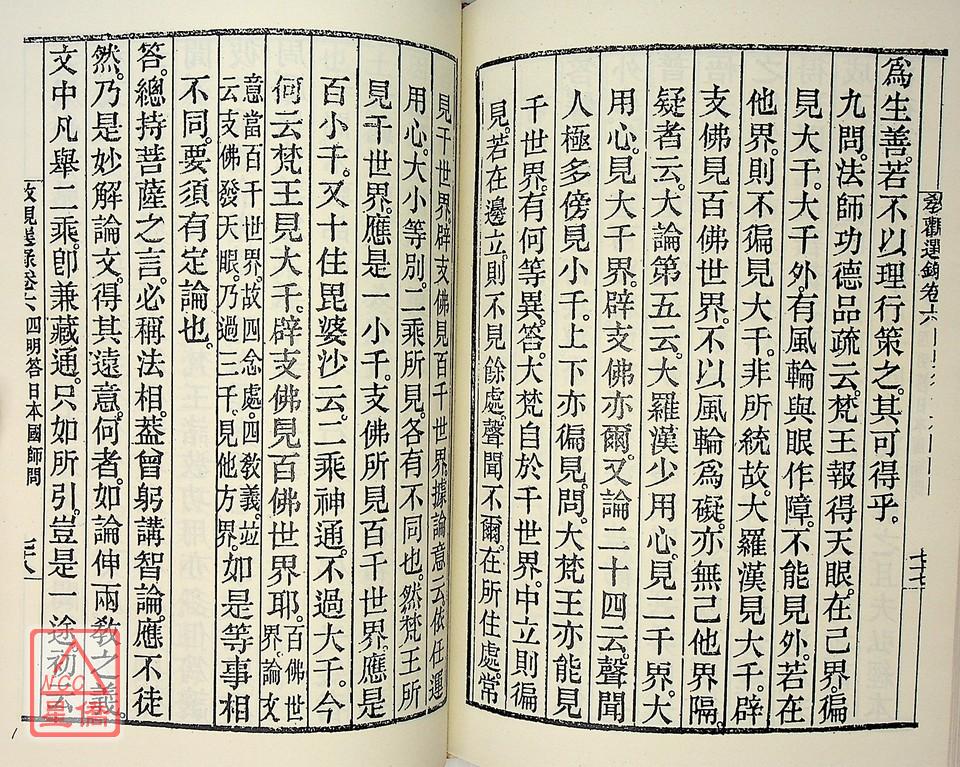 爲生善。若不以理行策之。其可得乎。
九問。法師功德品疏云。梵王報得天眼。在己界。徧
見大千。大千外。有風輪與眼作障。不能見外。若在
他界。則不徧見大千。非所統故。大羅漢見大千。辟
支佛見百佛世界。不以風輪爲礙。亦無己他界隔。
疑者云。大論第五云。大羅漢少用心。見二千界。大
用心。見大千界。辟支佛亦爾。又論二十四云。聲聞
人極多傍見小千。上下亦徧見。問。大梵王亦能見
千世界。有何等異。答。大梵自於千世界中立則徧
見。若在邊立。則不見餘處。聲聞不爾。在所住處。常
見千世界。辟支佛見百千世界。據論意云。依仕運
用心。大小等別。二乘所見。各有不同也。然梵王所
見千世界。應是一小千。支佛所見百千世界。應是
百小千。又十住毘婆沙云。二乘神通。不過大千。今
何云梵王見大千。辟支佛見百佛世界耶。百佛世界論文
意當百千世界故四念處。四教義。竝
云支佛發天眼。乃過三千。見他方界。如是等事相
不同。要須有定論也。
答。總持菩薩之言。必稱法相。葢曾躬講智論。應不徒
然。乃是妙解論文。得其遠意。何者。如論伸兩教之義。
文中凡舉二乘。卽兼藏通。只如所引。豈是一途。初
教觀選錄卷六
十七
卷六 四明答日本國師問
二八
NCC
星僑